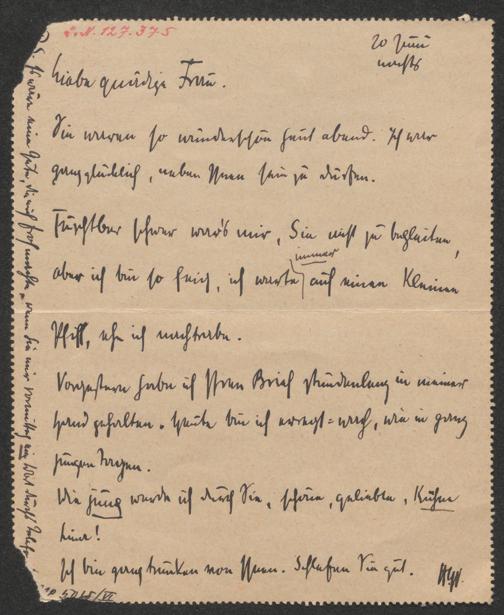 L.N. 127.375
20 Juni
nachts
Liebe gnädige Frau.
Sie waren so wunderschön heut abend. Ich war
ganz glücklich, neben Ihnen sein zu dürfen.
Furchtbar schwer war's mir, Sie nicht zu begleiten,
aber ich bin so feich, ich warte immer auf einen kleinen
Pfiff, ehe ich nachtrabe.
Vorgestern habe ich Ihren Brief stundenlang in meiner
Hand gehalten. Heute bin ich erregt-wach, wie in ganz
jungen Tagen.
Wie jung werde ich durch Sie, schöne, geliebte,
Ich bin ganz trunken von Ihnen. Schlafen Sie gut.
wäre eine Gute, die mich froh machte, wenn Sie mir vormittag ein Wort durch